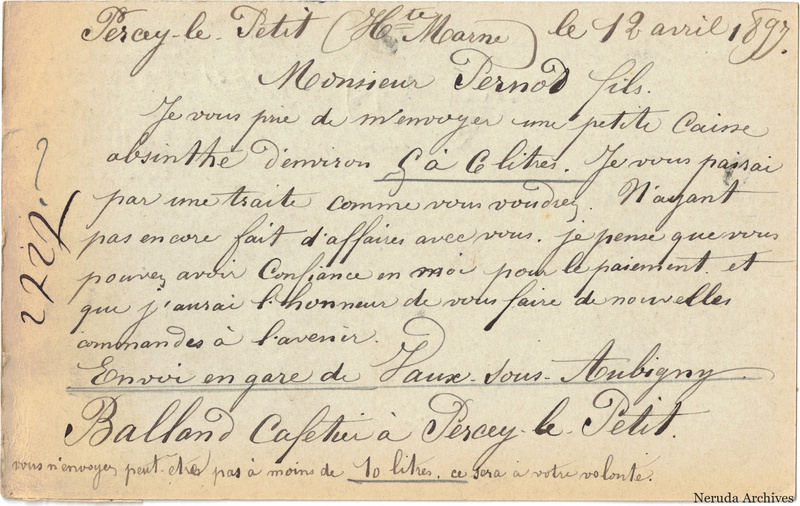 Percey-le-Petit (Hte Marne) le 12 avril 1897.
Monsieur Pernod fils.
Je vous prie de m'envoyer une petite Caisse
absinthe d'environ 5 à 6 litres. Je vous paierai
par une traite comme vous voudrez. N'ayant
pas encore fait d'affaires avec vous. je pense que vous
pouvez avoir Confiance en moi pour le paiement. et
que j'aurai l'honneur de vous faire de nouvelles
commandes à l'avenir.
Envoi en gare de Vaux-sous-Aubigny
Balland Cafetier à Percey-le-Petit.
vous n'envoyez peut-être pas à moins de 10 litres. ce sera à votre volonté.
Neruda Archives